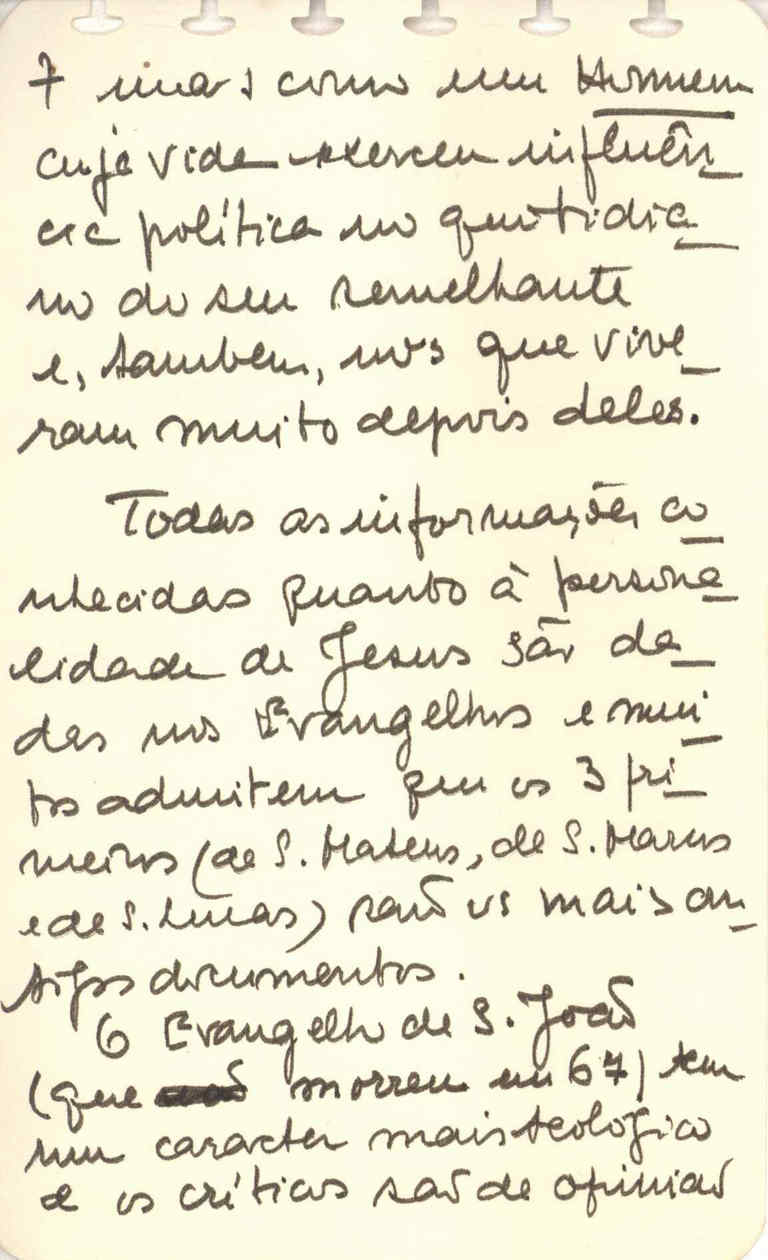 7 mas como um Homem
cuja vida exerceu influên_
cia política no quotidia_
no do seu semelhante
e, tambem, nós que vive_
ram muito depois deles.
Todas as informações co_
nhecidas quanto à persona_
lidade de Jesus são da_
das nos Evangelhos e mui_
tos admitem que os 3 pri_
meiros (de S. Mateus, de S. Marcos
e de S. Lucas) são os mais an_
tigos documentos.
O Evangelho de S. João
(que morreu em 67) tem
um caracter mais teologico
e os críticos são de opinião